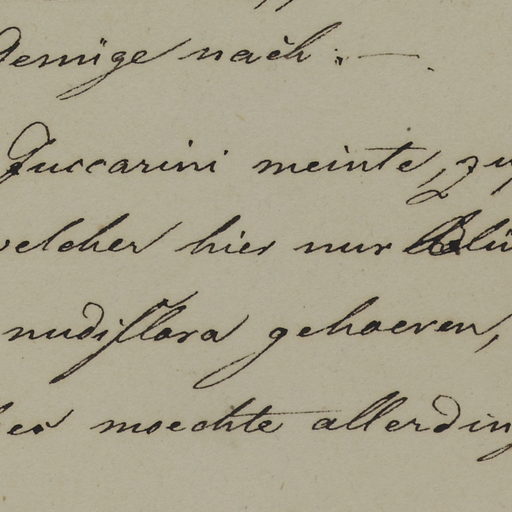 Demige nach :—.
Zuccarini meinte, zu
welcher hier nur Blü
nudiflora gehoeren,
es moechte allerding